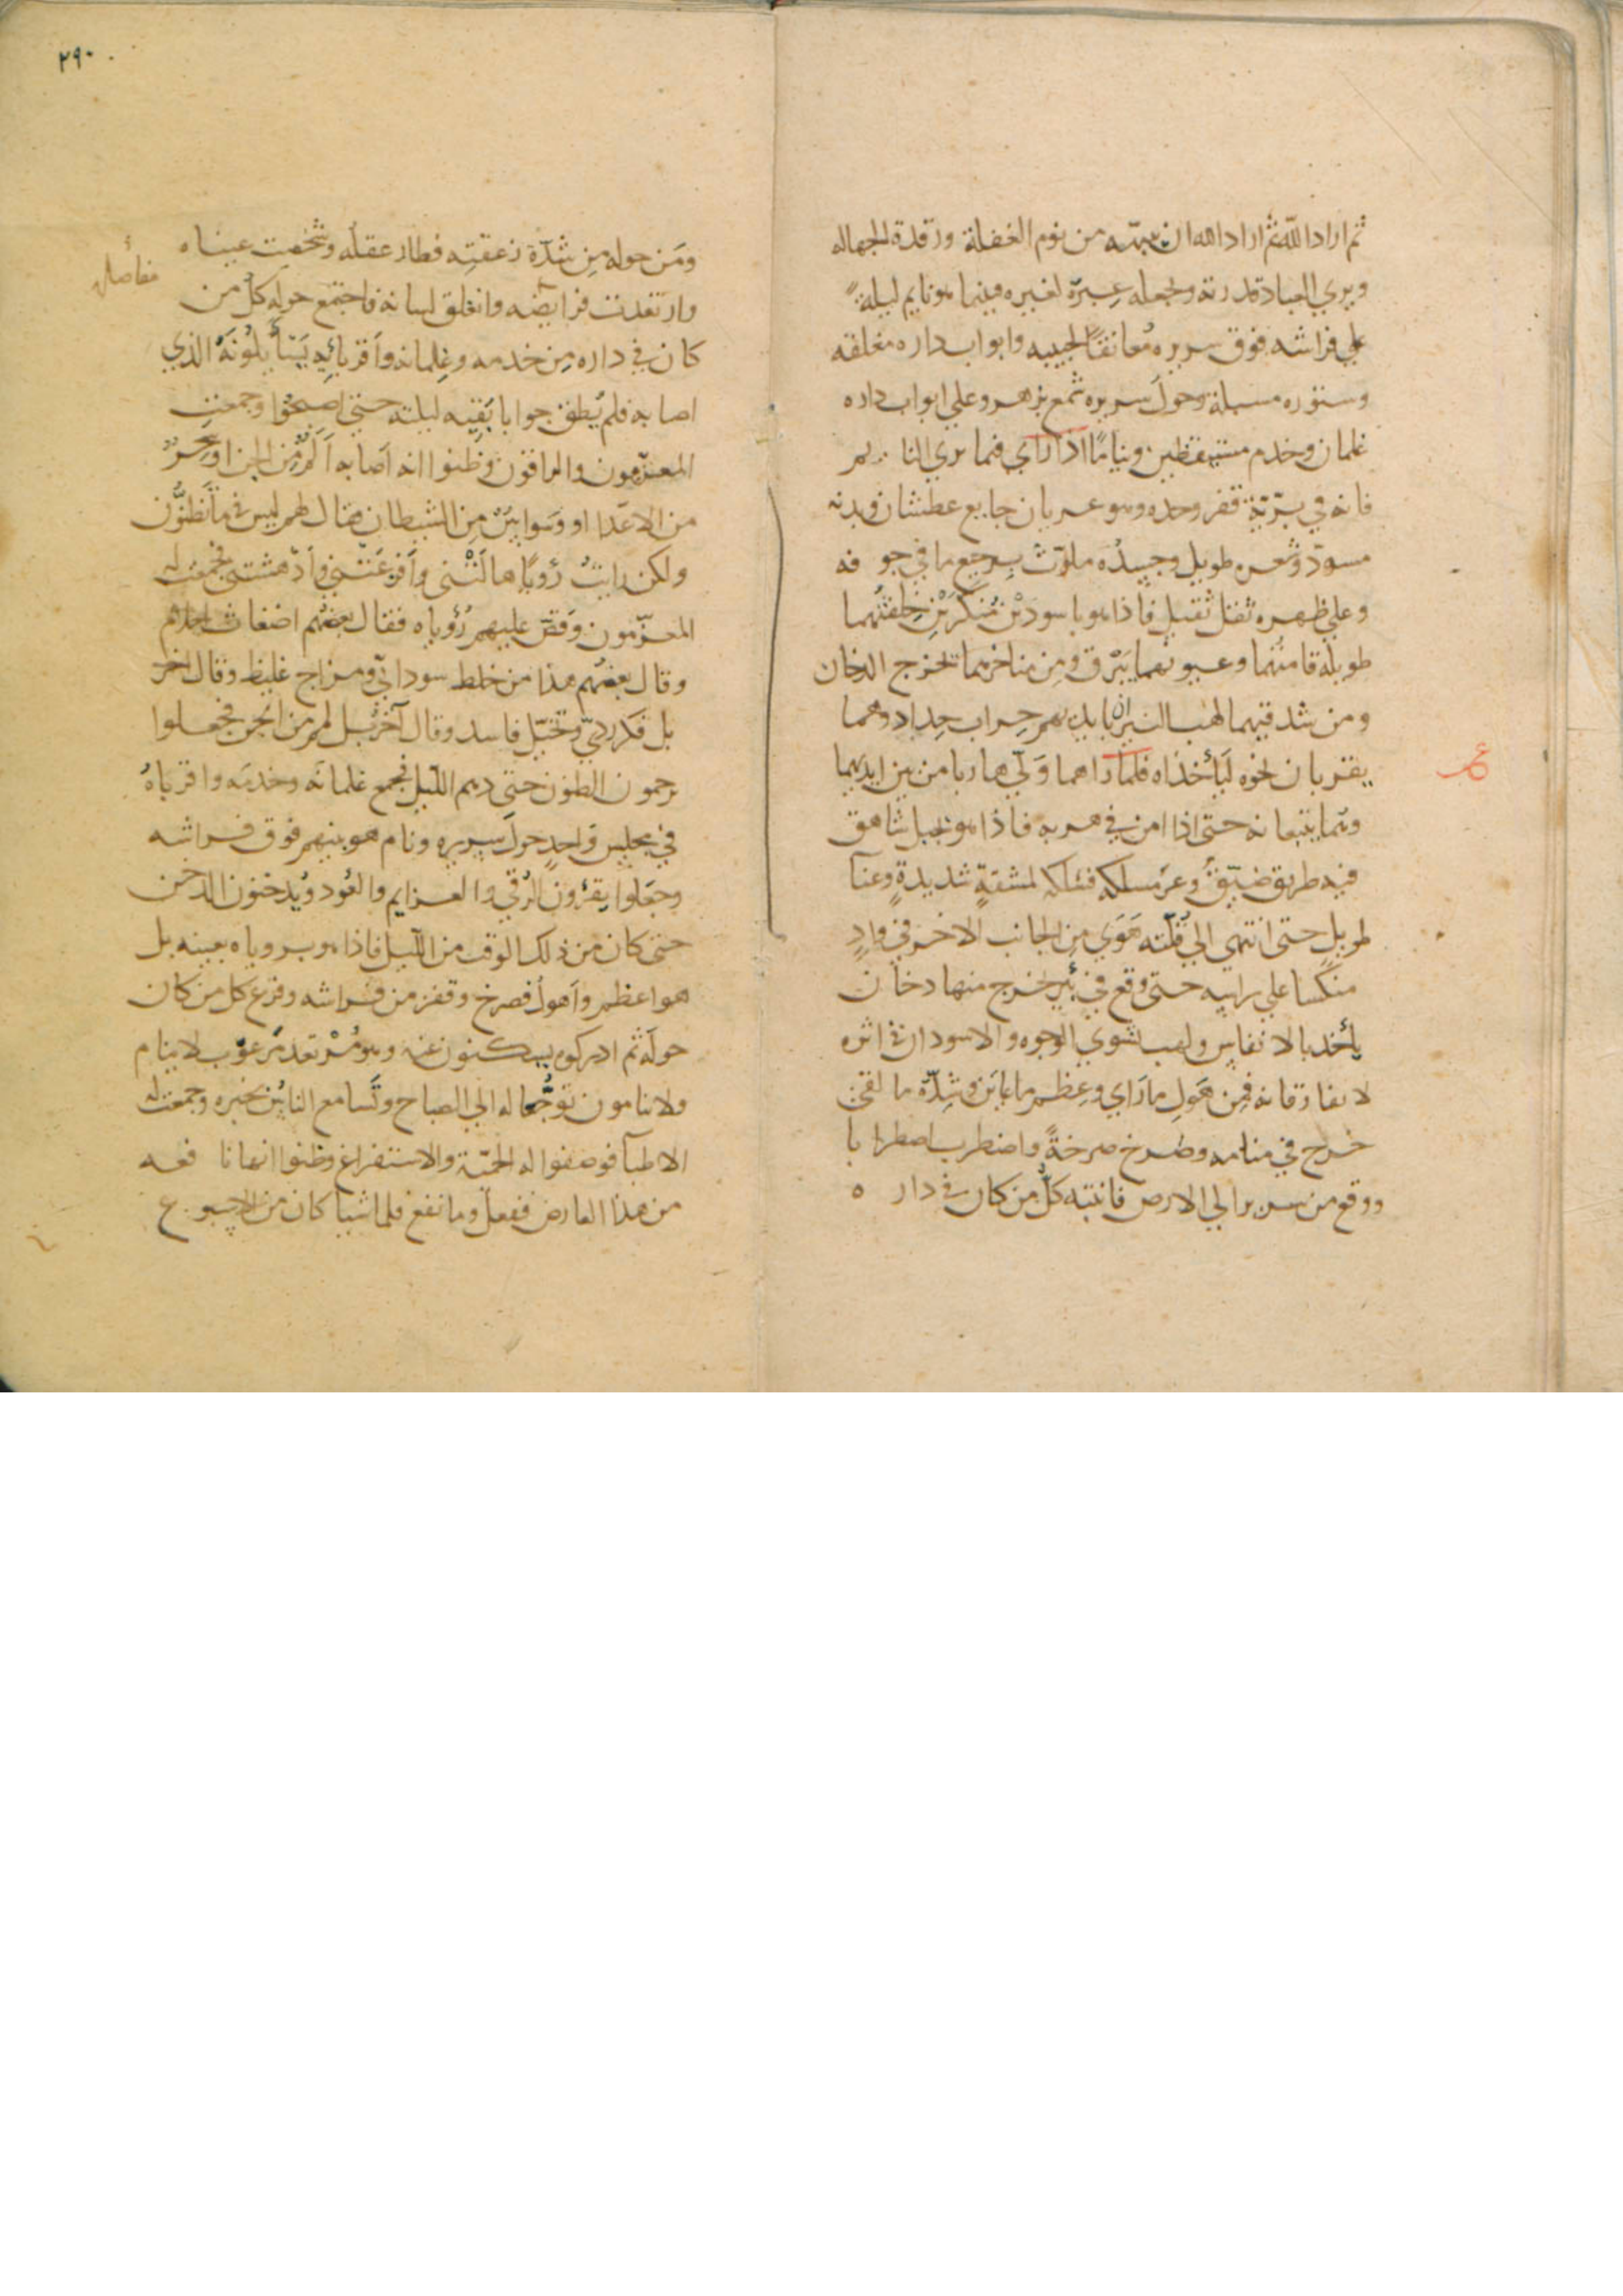 ثم اراد الله ثم اراد الله ان ينبّهه من نوم الغفلة ورقدة الجهاله
ويري العباد قدرته ولجعله عِبرة لغيره فبينما هو نايم ليلةً
علي فراشه فوق سريره مُعانقًا لحبيبه وابواب داره مغلقه
وستوره مسبلة وحول سريره شمع يزهر وعلي ابواب داره
غلمان وخدم مستيقظين ونيامًا اذ رأي فيما يري النايم
فانه في برّيّة قفر وحده وهو عريان جايع عطشان وبدنه
مسودّ وشعره طويل وجسده ملوّث برجيع ما في جوفه
وعلي ظهره ثقل ثقيل فاذا هو باسودين مُنكرَيْن خلقتُهما
طويلة قامتُهما وعيونهما يَبْرق ومن مناخرهما تخرج الدخان
ومن شدقيهما لهب النيران بايديهم حراب حِداد وهما
يقتربان نحوه ليَأخذاه فلما رَاهما وَلّي هاربا من بين ايديهما
وهما يتبعانه حتى اذا امن في هربه فاذا هو بجبل شاهق
فيه طريق ضيّقٌ وعرٌ مسلكه فسلكه لمشقةٍ شديدةٍ وعنآ
طويلٍ حتى انتهي الي قُلّته هَوَي مِن الجانب الاخر في وادٍ
منكّسا علي راسه حتى وقع في بُير خرج منها دخان
يأخذ بالانفاس ولهب يشوي الوجوه والاسودان في اثره
لا يفارقانه فمِن هَولِ ما رَاي وعِظم ما عايَن وشدّة ما لقى
خرج في منامه وصرخ صرخةً واضطرب اضطرابا
ووقع من سريره الي الارض فانتبه كلُّ من كان في داره
٢٩٠
ومَن حوله مِن شدّة زعقتِه فطار عقلُه وشخصت عيناه
مفاصله
وارتعدت فرايضه وانغلق لسانه فاجتمع حوله كلُّ من
كان في داره مِن خدمه وغِلمانه وأقربائِه يَسْأَلُونَهُ الذي
اصابه فلم يُطق جوابا بقيه ليلته حتي اصبحُوا وجمعت
المعزّمون والراقون وظنوا انه اصابه ألَمٌ مِّن الجن او سِحرٌ
من الاعدا او وَسَواسٌ مِن الشيطان فقال لهم ليس في ما تَظنُّون
ولكن رايتُ رُؤيًا هالَتْني وأفزعَتني وأدهشتني فجمعت له
المعزّمون وقصّ عليهم رُؤياه فقال بعضُهم اضغاث احلام
وقال بعضُهم هذا من خلط سوداني ومزاج غليظ وقال اخر
بل فكر رديّ وتخيّل فاسد وقال آخر بل لمم من الجن فجعلوا
يرجمون الظنون حتي دهم اللّيل فجمع غلمانَه وخدمَه واقرباهُ
في مجلِس واحدٍ حولَ سريره ونام هو بينهم فوق فراشه
وجعَلوا يقرُون الرُقي والعزايم والعُود ويُدخنون الدخن
حتى كان من ذلك الوقت من اللّيل فاذا هو بروياه بعينه بل
هو اعظم وأهول فصرخ وقفز من فراشه وفزع كل من كان
حولَه ثم ادركوه يسكنون عنه وهو مُرْتعد مرعوب لا ينام
ولا ينامون توجُّعا له الي الصباح وتسامع الناسُ بخبره وجمعت له
الاطبآ فوصفوا له الحميّة والاستفراغ وظنوا انها نافعه
من هذا العارض ففعل وما نفع فلما شيا كان من الاسبوع